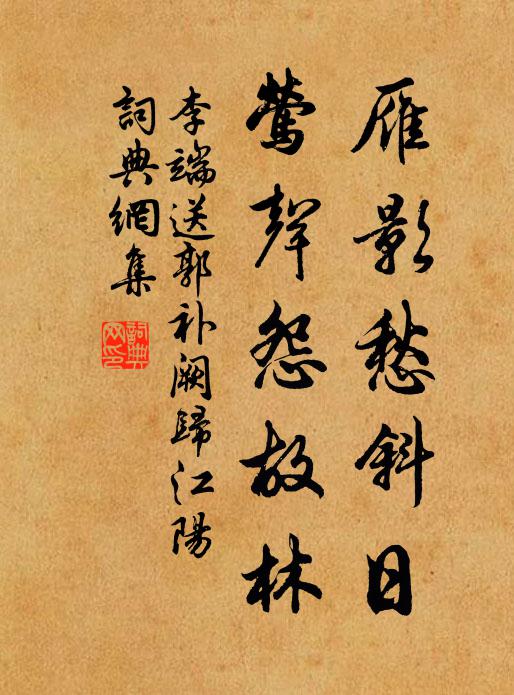 雁影愁斜日
鶯聲怨故林
李端送郭补闕歸江陽
詞典網集
詞典网印